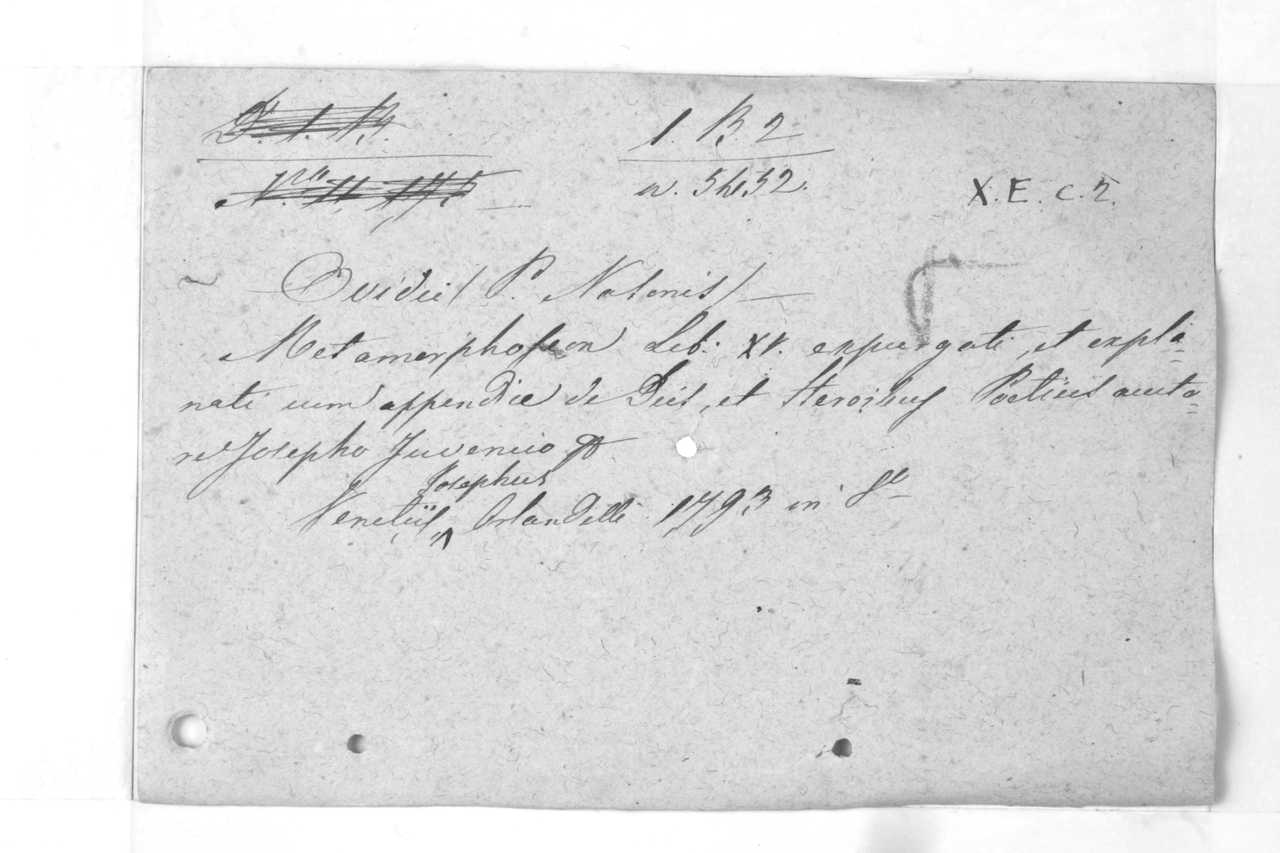 1. B. 2
n. 5452.
X. E. c. 2.
Ovidii ( P. Nasonis )
Metamorphoseon Lib: XV. expurgati, et expla=
nati cum appendice de Diis, et Heroibus Poeticis aucto=
re Josepho Juvencio
Josephus
Venetiis Orlandelli 1793 in 8º